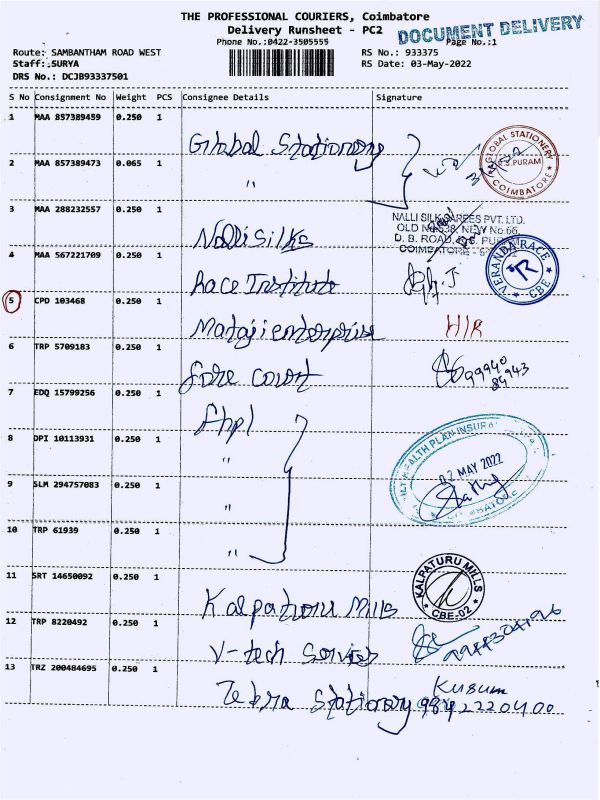 THE PROFESSIONAL COURIERS, Coimbatore
Delivery Runsheet - PC2
DOCUMENT DELIVERY
Phone No.:0422-3505555
Page No.:1
Route: SAMBANTHAM ROAD WEST
RS No.: 933375
Staff: SURYA
RS Date: 03-May-2022
DRS No.: DCJB93337501
S No Consignment No Weight PCS Consignee Details Signature
1 MAA 857389459 0.250 1 Global Stationery
GLOBAL STATIONERY
R.S.PURAM
COIMBATORE
2 MAA 857389473 0.065 1 "
3 MAA 288232557 0.250 1 Nalli Silks
NALLI SILK SAREES PVT. LTD.
OLD No.538, NEW No.66,
D. B. ROAD, R.S. PURAM
COIMBATORE
4 MAA 567221709 0.250 1 Race Institute
VERANDA RACE
CBE
5 CPD 103468 0.250 1 Mataji enterprise
6 TRP 5709183 0.250 1 fore court
99940
84943
7 EDQ 15799256 0.250 1 fhpl
8 DPI 10113931 0.250 1 "
HEALTH PLAN INSURA
02 MAY 2022
9 SLM 294757083 0.250 1 "
10 TRP 61939 0.250 1 "
11 SRT 14650092 0.250 1 Kalpatoru Mills
KALPATURU MILLS
CBE-02
12 TRP 8220492 0.250 1 V-tech Servies
13 TRZ 200484695 0.250 1 Zebra Stationary
Kusum
9842220400